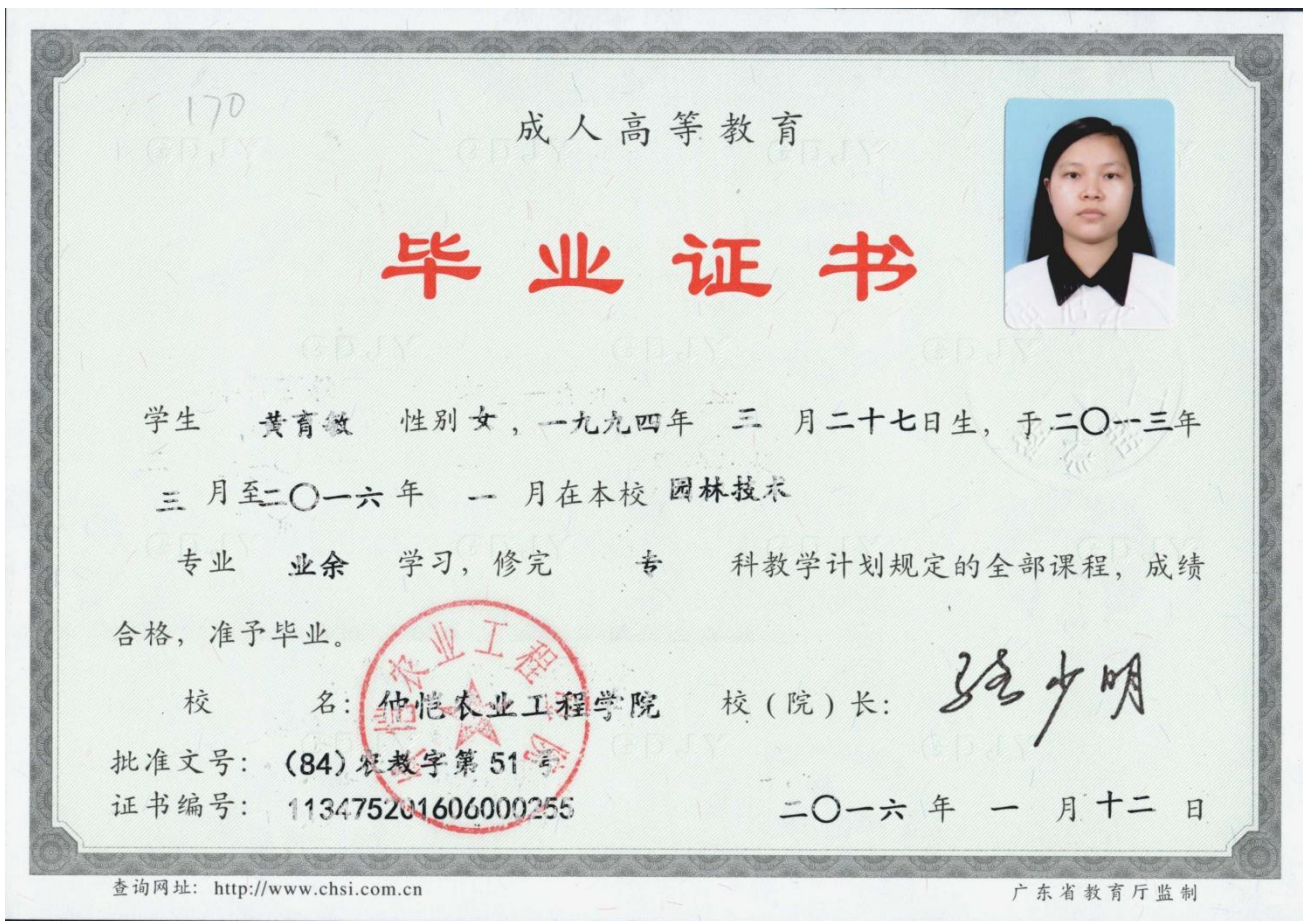 170
成人高等教育
毕业证书
学生 黄育敏 性别 女，一九九四年 三 月二十七日生，于二〇一三年
三 月至二〇一六 年 一 月在本校 园林技术
专业 业余 学习，修完 专 科教学计划规定的全部课程，成绩
合格，准予毕业。
校 名：仲恺农业工程学院 校（院）长：骆少明
批准文号：（84）农教字第 51 号
证书编号：113475201606000255
二〇一六 年 一 月 十二 日
查询网址：http://www.chsi.com.cn
广东省教育厅监制